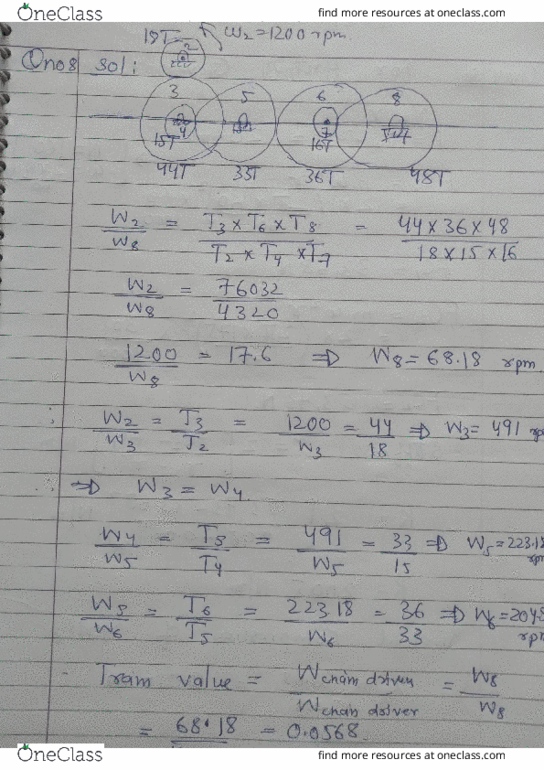 OneClass
find more resources at oneclass.com
18T
W2 = 1200 rpm.
2
Qno8 sol:
3 5 6 8
4 7
15T 16T
44T 33T 36T 48T
W2/W8 = T3 x T6 x T8 / T2 x T4 x T7 = 44 x 36 x 48 / 18 x 15 x 16
W2/W8 = 76032/4320
1200/W8 = 17.6 => W8 = 68.18 rpm
∴ W2/W3 = T3/T2 = 1200/W3 = 44/18 => W3 = 491 rp
∴ => W3 = W4
W4/W5 = T5/T4 = 491/W5 = 33/15 => W5 = 223.18 rpm
W5/W6 = T6/T5 = 22318/W6 = 36/33 => W6 = 2045 rpm
Tram value = Wchan driven / Wchan driver = W8/W8
= 68.18 = 0.0568.
OneClass
find more resources at oneclass.com